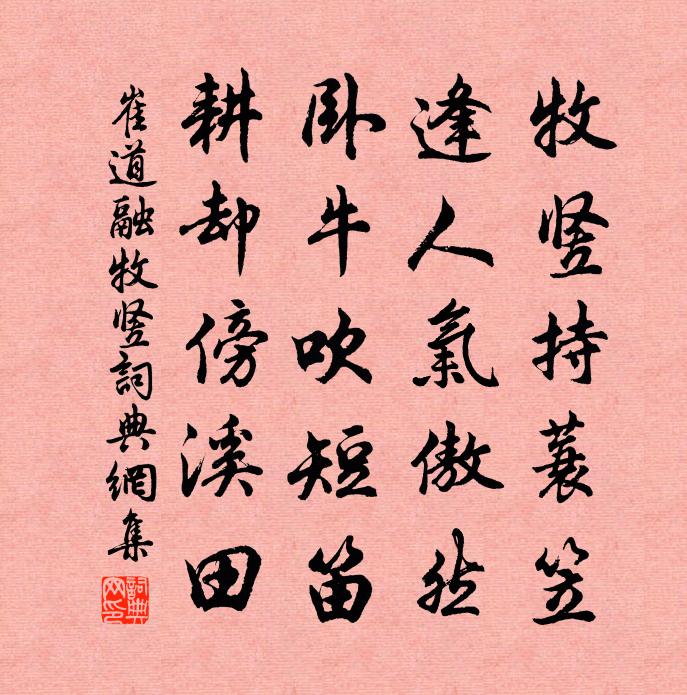 牧竖持蓑笠
逢人氣傲然
卧牛吹短笛
耕却傍溪田
崔道融牧竖詞典網集
詞典網印